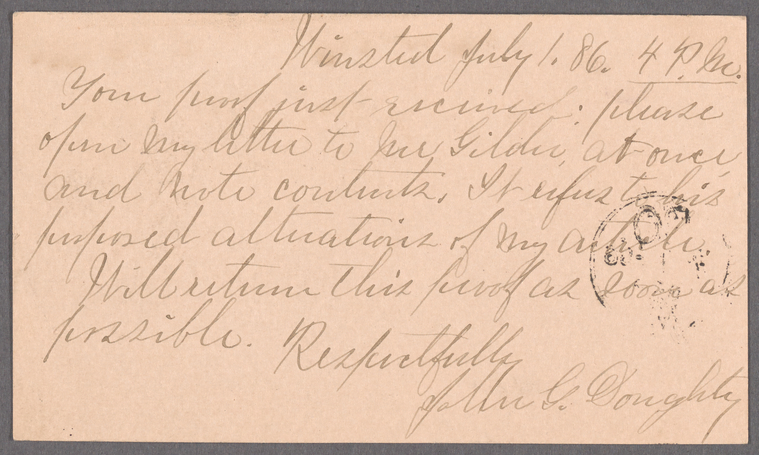 Winsted July 1. 86. 4 P.M.
Your proof just received: please
open my letter to Mr Gilder, at once
and note contents. It refers to his
proposed alterations of my article.
Will return this proof as soon as
possible.
Respectfully
John G. Doughty